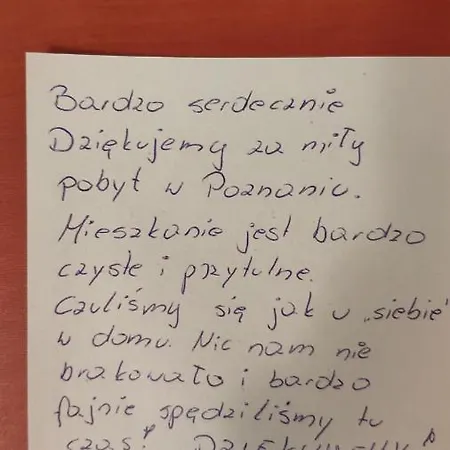 Bardzo serdecznie
Dziękujemy za miły
pobyt w Poznaniu.
Mieszkanie jest bardzo
czyste i przytulne.
Czuliśmy się jak u „siebie"
w domu. Nic nam nie
brakowało i bardzo
fajnie spędziliśmy tu
czas! Dziękujemy